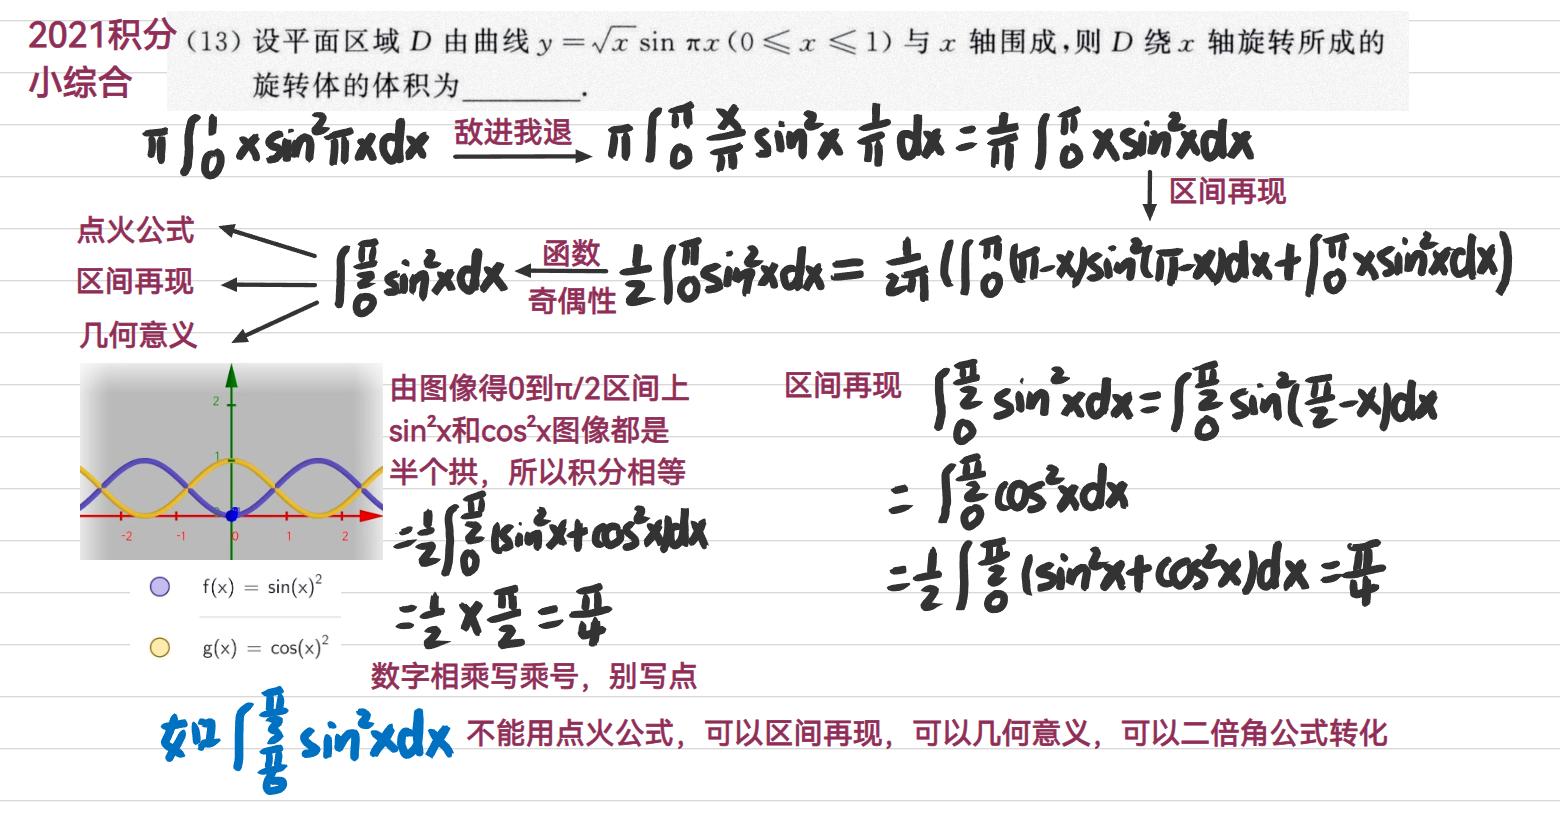 2021积分
小综合
(13) 设平面区域 D 由曲线 y=√x sin πx(0≤x≤1) 与 x 轴围成,则 D 绕 x 轴旋转所成的
旋转体的体积为________.
π∫₀¹ xsin²πxdx 敌进我退 π∫₀^π x/π sin²x 1/π dx = 1/π ∫₀^π xsin²xdx
区间再现
点火公式
区间再现
几何意义
∫₀^(π/2) sin²xdx 函数 奇偶性 1/2 ∫₀^π sin²xdx = 1/(2π) (∫₀^π (π-x)sin²(π-x)dx + ∫₀^π xsin²xdx)
2
1
-2 -1 0 1 2
f(x) = sin(x)²
g(x) = cos(x)²
由图像得0到π/2区间上
sin²x和cos²x图像都是
半个拱，所以积分相等
= 1/2 ∫₀^(π/2) (sin²x+cos²x)dx
= 1/2 × π/2 = π/4
数字相乘写乘号，别写点
区间再现 ∫₀^(π/2) sin²xdx = ∫₀^(π/2) sin²(π/2-x)dx
= ∫₀^(π/2) cos²xdx
= 1/2 ∫₀^(π/2) (sin²x+cos²x)dx = π/4
如 ∫_(π/6)^(π/3) sin²xdx 不能用点火公式，可以区间再现，可以几何意义，可以二倍角公式转化